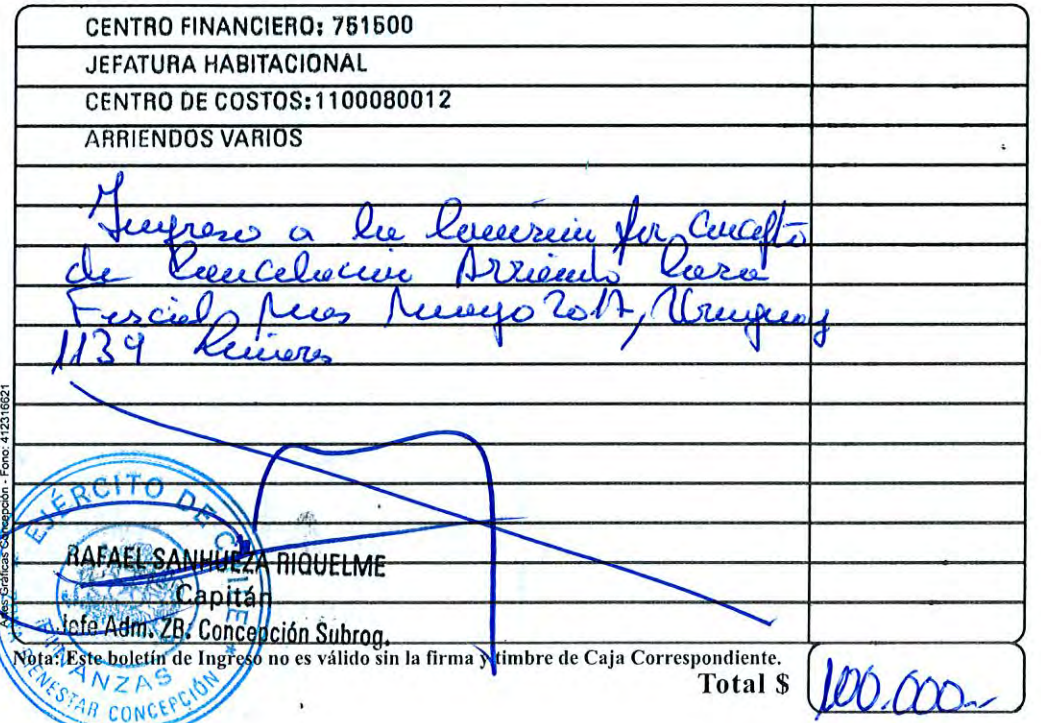 CENTRO FINANCIERO: 751500
JEFATURA HABITACIONAL
CENTRO DE COSTOS:1100080012
ARRIENDOS VARIOS
Ingreso a la por Concepto
de Cancelacion Arriendo Casa
Fiscal, mes Mayo 2017, Uruguay
1139
Artes Gráficas Concepción - Fono: 412316621
EJÉRCITO DE CHILE
RAFAEL SANHUEZA RIQUELME
Capitán
Jefe Adm. ZB. Concepción Subrog.
FINANZAS
BIENESTAR CONCEPCIÓN
Nota: Este boletín de Ingreso no es válido sin la firma y timbre de Caja Correspondiente.
Total $ 100.000.-